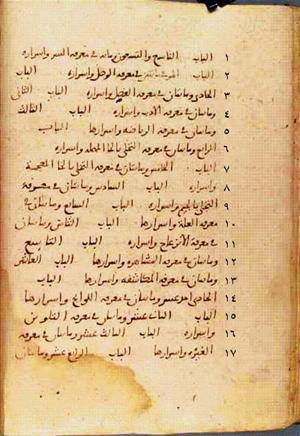 ١ الباب التاسع والتسعون ومائه في معرفه السر واسراره
٢ الباب الموفى مائتين في معرفه الوصل واسراره الباب
٣ الحادى ومائتان في معرفة الفصل واسراره الباب الثانى
٤ ومائتان في معرفه الادب واسراره الباب الثالث
٥ ومائتان في معرفه الرياضه واسرارها الباب
٦ الرابع ومائتان في معرفه التحلى بالحا المهمله واسراره
٧ الباب الخامس ومائتان في معرفه التخلى بالخا المعجمة
٨ واسراره الباب السادس ومائتان في معرفة
٩ التجلى بالجيم واسراره الباب السابع ومائتان في
١٠ معرفة العلة واسرارها الباب الثامن ومائتان
١١ في معرفة الانزعاج واسراره الباب التاسع
١٢ ومائتان في معرفه المشاهده واسرارها الباب العاشر
١٣ ومائتان في معرفه المكاشفه واسرارها الباب
١٤ الحادى احد عشر ومائتان في معرفه اللوائح واسرارها
١٥ الباب الثانى عشر ومائتان في معرفه التلوين
١٦ واسراره الباب الثالث عشر ومائتان في معرفه
١٧ الغيره واسرارها الباب الرابع عشر ومائتان